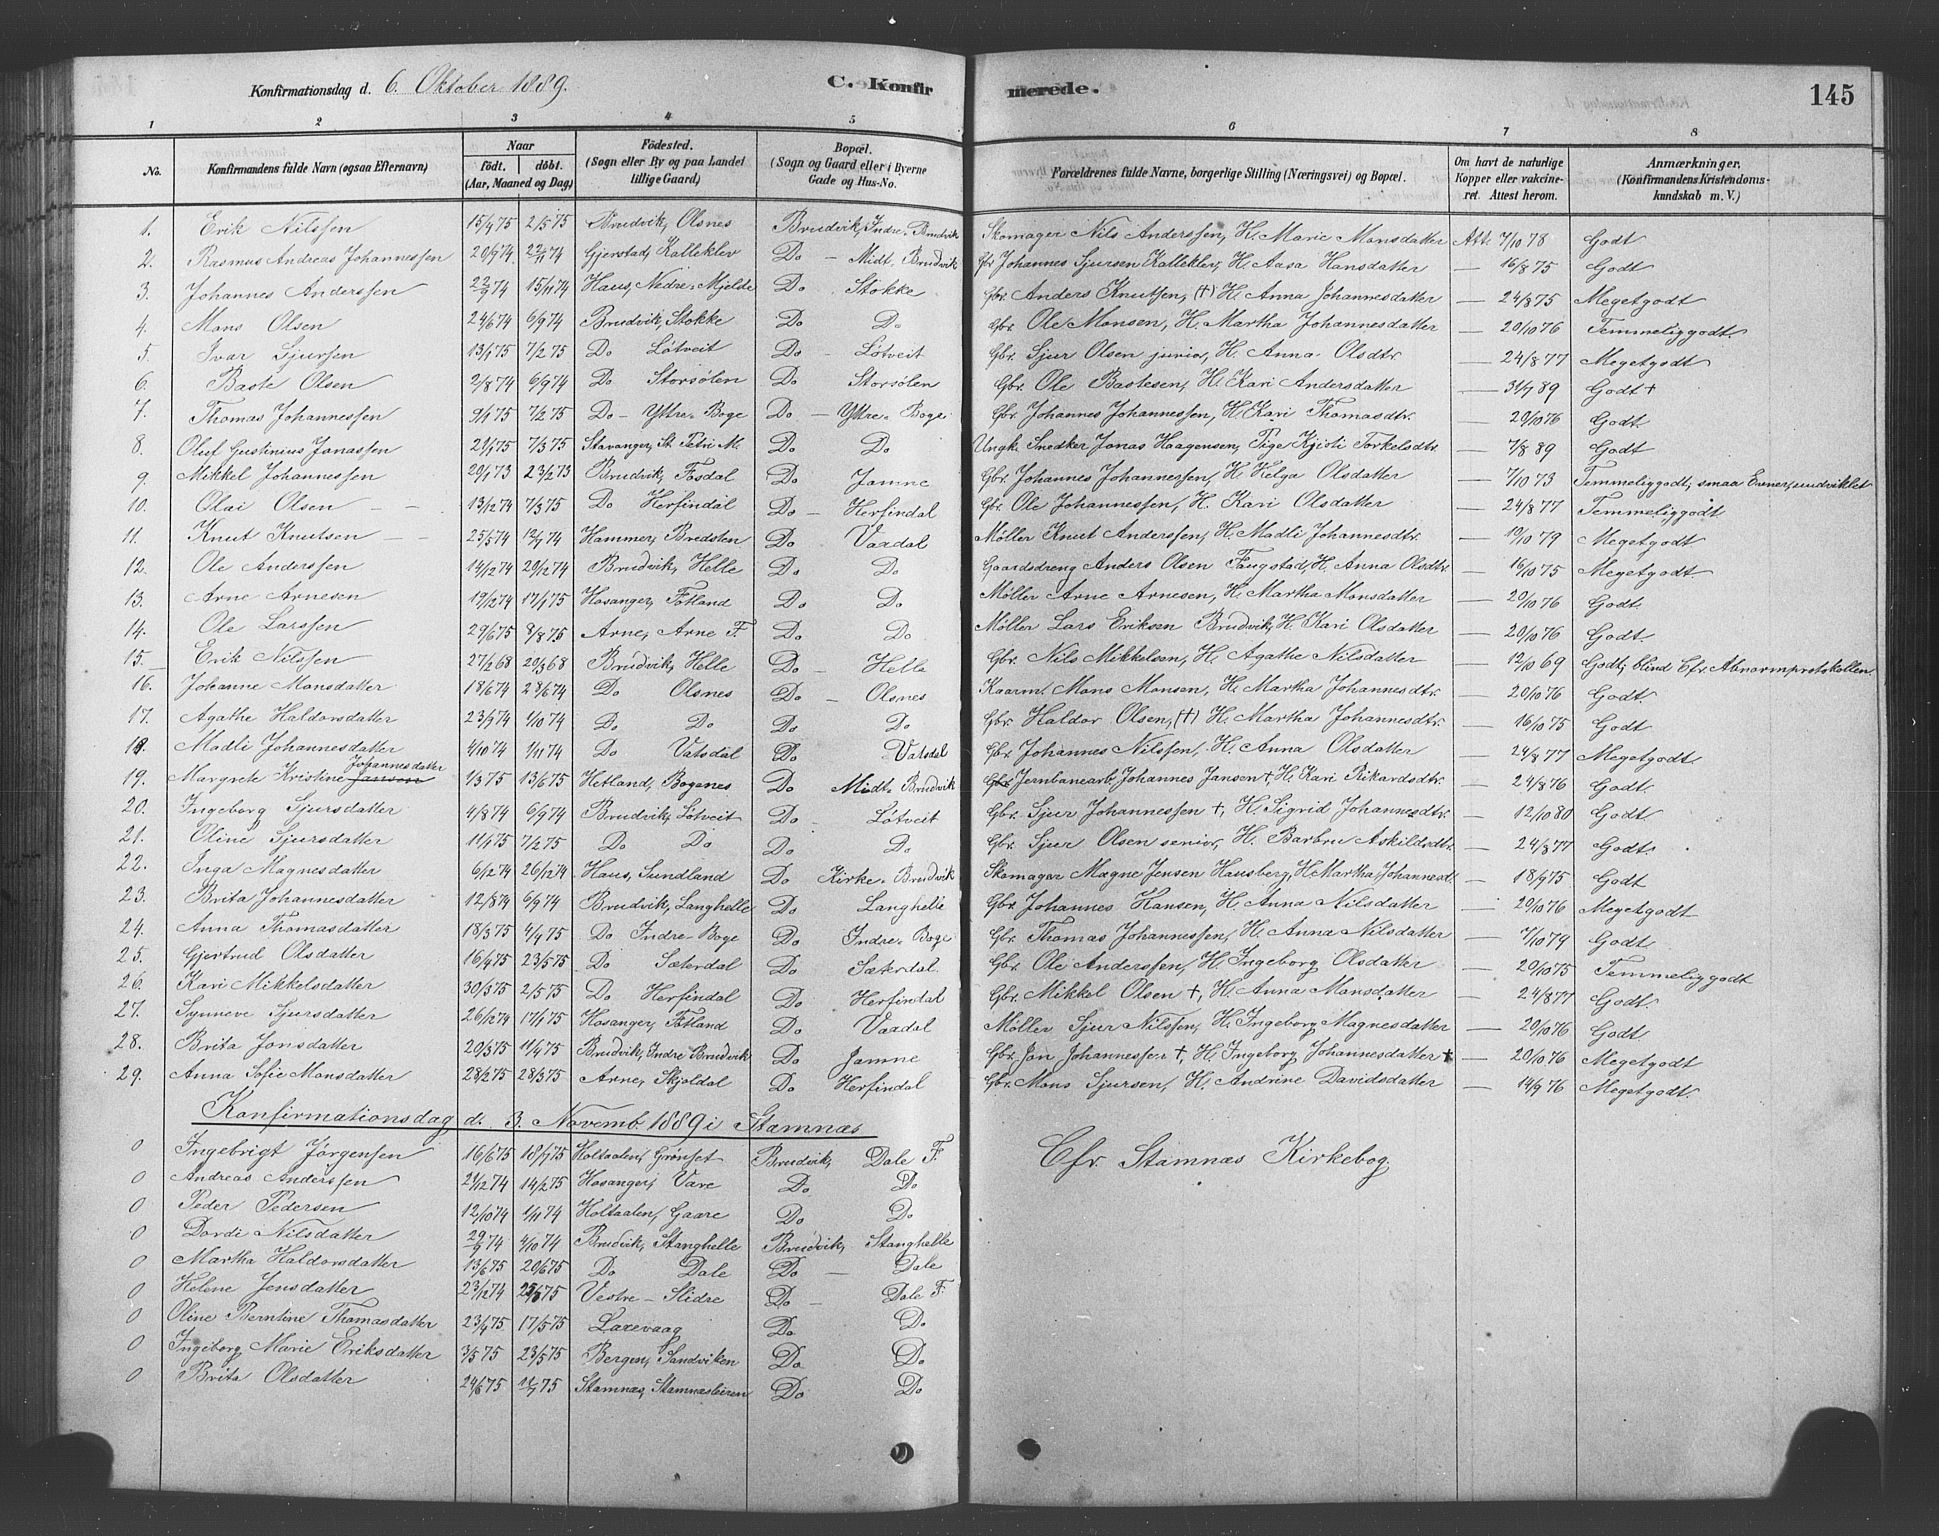 Konfirmationsdag d. 6. Oktober 1889. C. Konfirmerede. 145
1 2 3 4 5 6 7 8
No. Konfirmandens fulde Navn (ogsaa Efternavn) Naar födt. döbt. (Aar, Maaned og Dag) Födested. (Sogn eller By og paa Landet tillige Gaard) Bopæl. (Sogn og Gaard eller i Byerne Gade og Hus-No. Forældrenes fulde Navne, borgerlige Stilling (Næringsvei) og Bopæl. Om havt de naturlige Kopper eller vakcineret. Attest herom. Anmærkninger. (Konfirmandens Kristendomskundskab m. V.)
1. Erik Nilssen 15/4 75 2/5 75 Brudvik, Olsnes Brudvik, Indre-Brudvik Skomager Nils Anderssen, H. Marie Monsdatter Att. 7/10 78 Godt
2. Rasmus Andreas Johannessen 20/9 74 22/11 74 Gjerstad, Kalleklev Do - Midt-Brudvik Gbr Johannes Sjursen Kalleklev, H. Aasa Hansdatter — 16/8 75 Godt
3. Johannes Anderssen 22/9 74 15/11 74 Haus, Nedre-Mjelde Do Stokke Gbr. Anders Knutsen, (†) H. Anna Johannesdatter — 24/8 75 Megetgodt
4. Mons Olsen 24/6 74 6/9 74 Brudvik, Stokke Do Do Gbr. Ole Monsen, H. Martha Johannesdatter — 20/10 76 Temmeliggodt.
5. Ivar Sjursen 13/1 75 7/2 75 Do Lötveit Do - Lötveit Gbr. Sjur Olsen junior, H. Anna Olsdtr — 24/8 77 Megetgodt
6. Baste Olsen 2/8 74 6/9 74 Do Storsölen Do Storsölen Gbr. Ole Bastesen, H. Kari Andersdatter — 31/7 89 Godt †
7. Thomas Johannessen 9/1 75 7/2 75 Do - Yttre-Boge Do - Yttre-Boge Gbr. Johannes Johannessen, H. Kari Thomasdtr. — 20/10 76 Godt
8. Oluf Gustinius Jonassen 21/1 75 7/3 75 Stavanger, St. Petri M. Do Do Ungk. Snedker Jonas Haagensen, Pige Kjisti Torkelsdtr. — 7/8 89 Godt
9. Mikkel Johannessen 20/1 73 23/2 73 Brudvik, Fosdal Do Jamne Gbr. Johannes Johannessen, H. Helga Olsdatter — 7/10 73 Temmeliggodt, smaa Evner, uudviklet
10. Olai Olsen 13/12 74 7/3 75 Do Herfindal Do - Herfindal Gbr. Ole Johannessen, H. Kari Olsdatter — 24/8 77 Temmeliggodt
11. Knut Knutsen 25/5 74 12/7 74 Hammer, Bredsten Do Vaadal Møller Knut Anderssen, H. Madli Johannesdtr. — 19/10 79 Megetgodt
12. Ole Anderssen 14/12 74 20/12 74 Brudvik, Helle Do Do Gaardsdreng Anders Olsen Faugstad, H. Anna Olsdtr — 16/10 75 Megetgodt
13. Arne Arnesen 19/12 74 17/1 75 Hosanger, Fotland Do Do Møller Arne Arnesen, H. Martha Monsdatter — 20/10 76 Godt.
14. Ole Larssen 29/6 75 8/8 75 Arne, Arne F. Do Do Møller Lars Eriksen Brudvik, H. Kari Olsdatter — 20/10 76 Godt
15. Erik Nilssen 27/2 68 20/3 68 Brudvik, Helle Do - Helle Gbr. Nils Mikkelsen, H. Agathe Nilsdatter — 12/10 69 Godt, blind Cfr. Abnormprotokollen
16. Johanne Monsdatter 18/6 74 28/6 74 Do Olsnes Do - Olsnes Kaarm. Mons Monsen, H. Martha Johannesdtr. — 20/10 76 Godt.
17. Agathe Haldorsdatter 23/9 74 1/10 74 Do Do Do Do Gbr. Haldor Olsen, (†) H. Martha Johannesdtr. — 16/10 75 Godt
18. Madli Johannesdatter 4/10 74 1/11 74 Do Vatsdal Do Vatsdal Gbr. Johannes Nilssen, H. Anna Olsdatter — 24/8 77 Megetgodt
19. Margrete Kristine Jansen Johannesdatter 1/3 75 13/6 75 Hetland, Bogenes Do Midt-Brudvik Gbr Jernbanearb. Johannes Jansen †, H. Kari Rikardsdtr. — 24/8 76 Godt.
20. Ingeborg Sjursdatter 4/8 74 6/9 74 Brudvik, Lötveit Do - Lötveit Gbr. Sjur Johannessen †, H. Sigrid Johannesdtr. — 12/10 80 Godt
21. Oline Sjursdatter 11/1 75 7/2 75 Do Do Do Do Gbr. Sjur Olsen senior, H. Barbru Askildsdtr. — 24/8 77 Godt.
22. Inga Magnesdatter 6/12 74 26/12 74 Haus, Sundland Do Kirke-Brudvik Skomager Magne Jensen Hausberg, H. Martha Johannesd. — 18/9 75 Godt
23. Brita Johannesdatter 12/8 74 6/9 74 Brudvik, Langhelle Do Langhelle Gbr. Johannes Hansen, H. Anna Nilsdatter — 20/10 76 Megetgodt
24. Anna Thomasdatter 18/3 75 4/4 75 Do Indre-Boge Do Indre-Boge Gbr. Thomas Johannessen, H. Anna Nilsdatter — 7/10 79 Godt
25. Gjertrud Olsdatter 16/4 75 23/5 75 Do Sæterdal Do Sæterdal. Gbr. Ole Anderssen, H. Ingeborg Olsdatter — 20/10 75 Temmeliggodt
26. Kari Mikkelsdatter 30/3 75 2/5 75 Do Herfindal Do Herfindal Gbr. Mikkel Olsen †, H. Anna Monsdatter — 24/8 77 Godt.
27. Synneve Sjursdatter 26/12 74 17/1 75 Hosanger, Fotland Do Vaadal Møller Sjur Nilssen, H. Ingeborg Magnesdatter — 20/10 76 Godt
28. Brita Jonsdatter 20/3 75 11/4 75 Brudvik, Indre Brudvik Do Jamne Gbr. Jon Johannessen †, H. Ingeborg Johannesdatter † — 20/10 76 Megetgodt
29. Anna Sofie Monsdatter 28/2 75 28/3 75 Arne, Skjoldal Do Herfindal Gbr. Mons Sjursen, H. Andrine Davidsdatter — 14/9 76 Megetgodt.
Konfirmationsdag d. 3. Novemb. 1889 i Stamnæs
0 Ingebrigt Jørgensen 16/6 75 18/7 75 Holtaalen, Grönset Brudvik, Dale F. Cfr. Stamnæs Kirkebog.
0 Andreas Anderssen 21/12 74 14/2 75 Hosanger, Vare Do Do
0 Peder Pedersen 12/10 74 1/11 74 Holtaalen, Gaare Do Do
0 Dordi Nilsdatter 29/9 74 4/10 74 Brudvik, Stanghelle Brudvik, Stanghelle
0 Martha Haldorsdatter 13/6 75 20/6 75 Do Dale Do - Dale
0 Helene Jensdatter 23/12 74 75 Vestre-Slidre Do - Dale F
0 Oline Berntine Thomasdatter 23/4 75 17/5 75 Laxevaag Do Do
0 Ingeborg Marie Eriksdatter 3/5 75 23/5 75 Bergen, Sandviken Do Do
0 Brita Olsdatter 24/6 75 75 Stamnæs, Stamnæsleiren Do Do